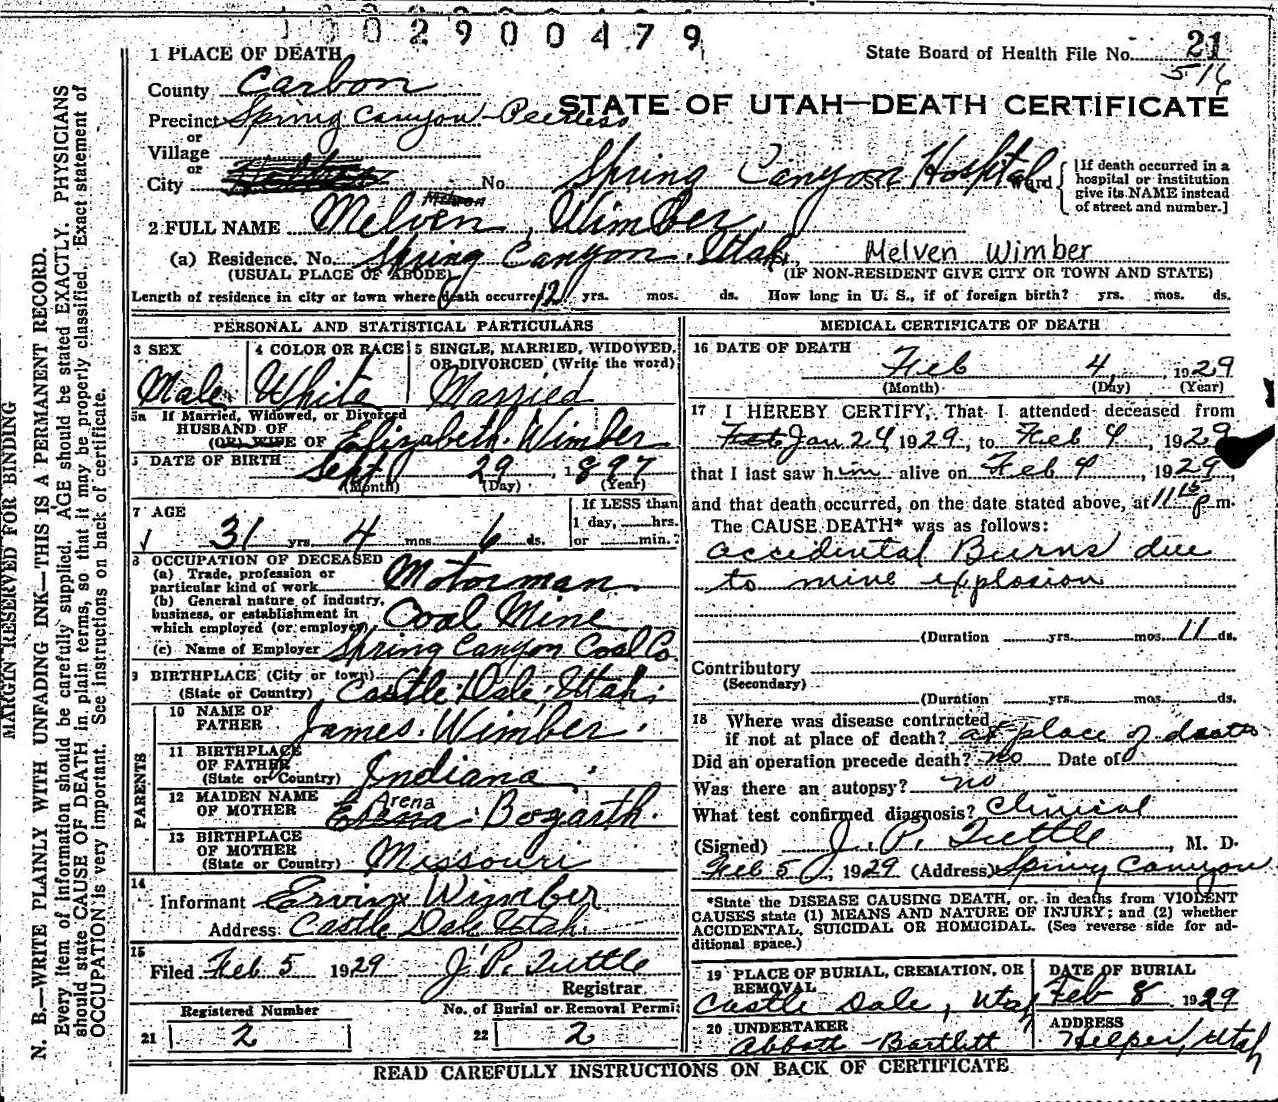 1 0 0 2 9 0 0 4 7 9
1 PLACE OF DEATH
State Board of Health File No. 21
516
County Carbon
STATE OF UTAH—DEATH CERTIFICATE
Precinct Spring Canyon - Peerless
or
Village
or
City No. Spring Canyon Hospital St. Ward
[If death occurred in a hospital or institution give its NAME instead of street and number.]
2 FULL NAME Melven Wimber
(a) Residence. No. Spring Canyon, Utah, Melven Wimber
(USUAL PLACE OF ABODE) (IF NON-RESIDENT GIVE CITY OR TOWN AND STATE)
Length of residence in city or town where death occurred 12 yrs. mos. ds. How long in U. S., if of foreign birth? yrs. mos. ds.
PERSONAL AND STATISTICAL PARTICULARS
3 SEX 4 COLOR OR RACE 5 SINGLE, MARRIED, WIDOWED, OR DIVORCED (Write the word)
Male White Married
5a If Married, Widowed, or Divorced
HUSBAND OF
(OR) WIFE OF Elizabeth Wimber
6 DATE OF BIRTH Sept 29, 1897
(Month) (Day) (Year)
7 AGE If LESS than
1 day, hrs.
31 yrs. 4 mos. 6 ds. or min.?
8 OCCUPATION OF DECEASED
(a) Trade, profession or
particular kind of work Motorman
(b) General nature of industry,
business, or establishment in
which employed (or employer) Coal Mine
(c) Name of Employer Spring Canyon Coal Co.
9 BIRTHPLACE (City or town)
(State or Country) Castle Dale, Utah.
PARENTS
10 NAME OF
FATHER James Wimber.
11 BIRTHPLACE
OF FATHER
(State or Country) Indiana
12 MAIDEN NAME
OF MOTHER Arena Bogarth.
13 BIRTHPLACE
OF MOTHER
(State or Country) Missouri
14
Informant Ervin Wimber
Address: Castle Dale Utah.
15
Filed Feb 5 1929 J. P. Tuttle
Registrar
Registered Number No. of Burial or Removal Permit
21 2 22 2
MEDICAL CERTIFICATE OF DEATH
16 DATE OF DEATH
Feb 4, 1929
(Month) (Day) (Year)
17 I HEREBY CERTIFY, That I attended deceased from
Jan 24 1929, to Feb 4, 1929,
that I last saw him alive on Feb 4, 1929,
and that death occurred, on the date stated above, at 11 15 P m.
The CAUSE DEATH* was as follows:
accidental Burns due
to mine explosion
(Duration yrs. mos. 11 ds.
Contributory
(Secondary)
(Duration yrs. mos. ds.
18 Where was disease contracted
if not at place of death? at place of death
Did an operation precede death? no Date of
Was there an autopsy? no
What test confirmed diagnosis? Clinical
(Signed) J. P. Tuttle, M. D.
Feb 5, 1929 (Address) Spring Canyon
*State the DISEASE CAUSING DEATH, or, in deaths from VIOLENT
CAUSES state (1) MEANS AND NATURE OF INJURY; and (2) whether
ACCIDENTAL, SUICIDAL OR HOMICIDAL. (See reverse side for ad-
ditional space.)
19 PLACE OF BURIAL, CREMATION, OR REMOVAL DATE OF BURIAL
Castle Dale, Utah Feb 8 1929
20 UNDERTAKER ADDRESS
Abbott - Bartlett Helper, Utah
READ CAREFULLY INSTRUCTIONS ON BACK OF CERTIFICATE
MARGIN RESERVED FOR BINDING
N. B.—WRITE PLAINLY WITH UNFADING INK—THIS IS A PERMANENT RECORD.
Every item of information should be carefully supplied. AGE should be stated EXACTLY. PHYSICIANS
should state CAUSE OF DEATH in plain terms, so that it may be properly classified. Exact statement of
OCCUPATION is very important. See instructions on back of certificate.